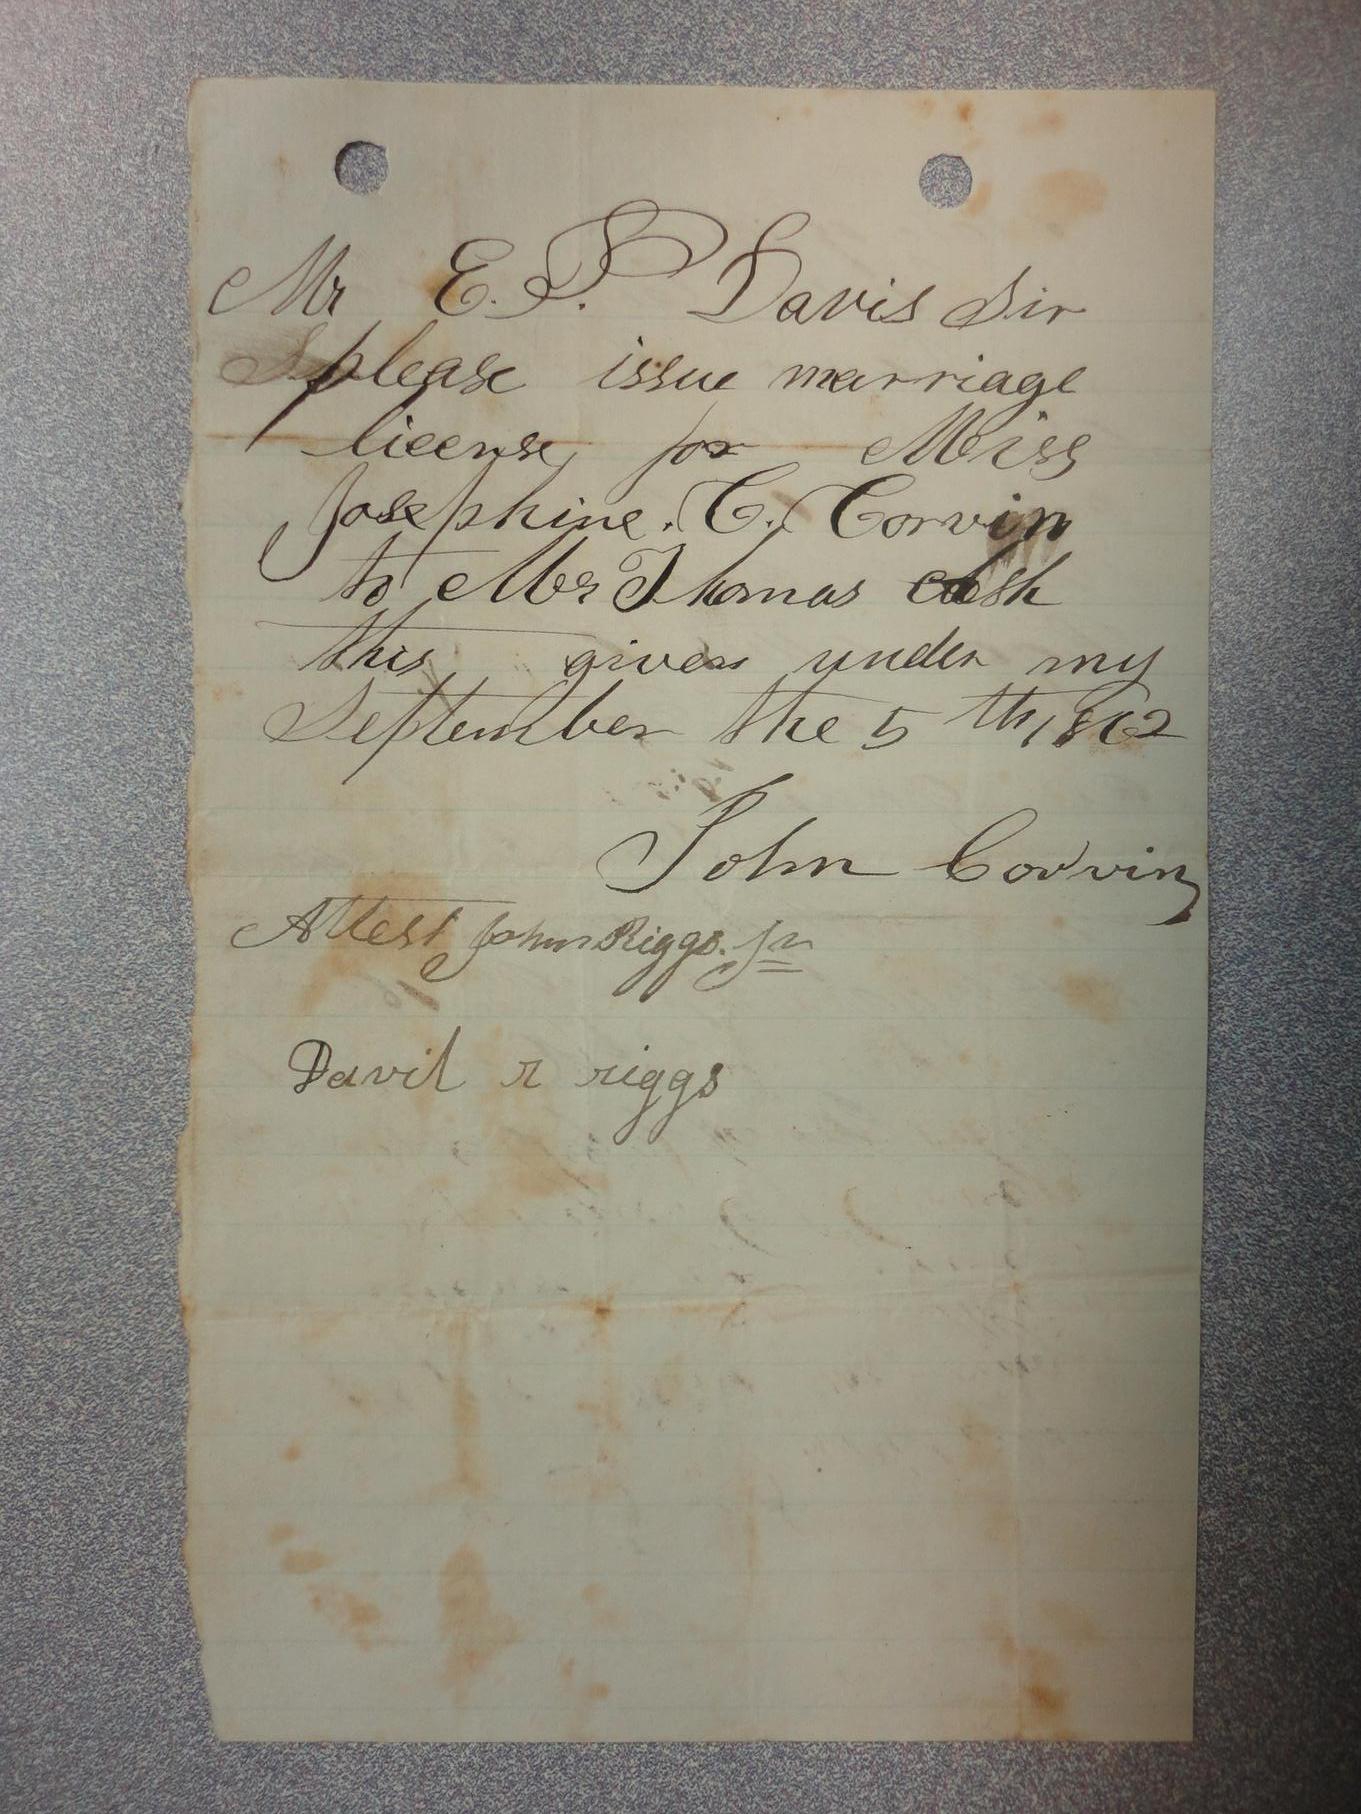 Mr E. S. Davis Sir
please issue marriage
license for Miss
Josephine. C. Corvin
to Mr Thomas Cash
this given under my
September the 5th, 1862
John Corvin
Attest John Riggs. Jr
David r riggs